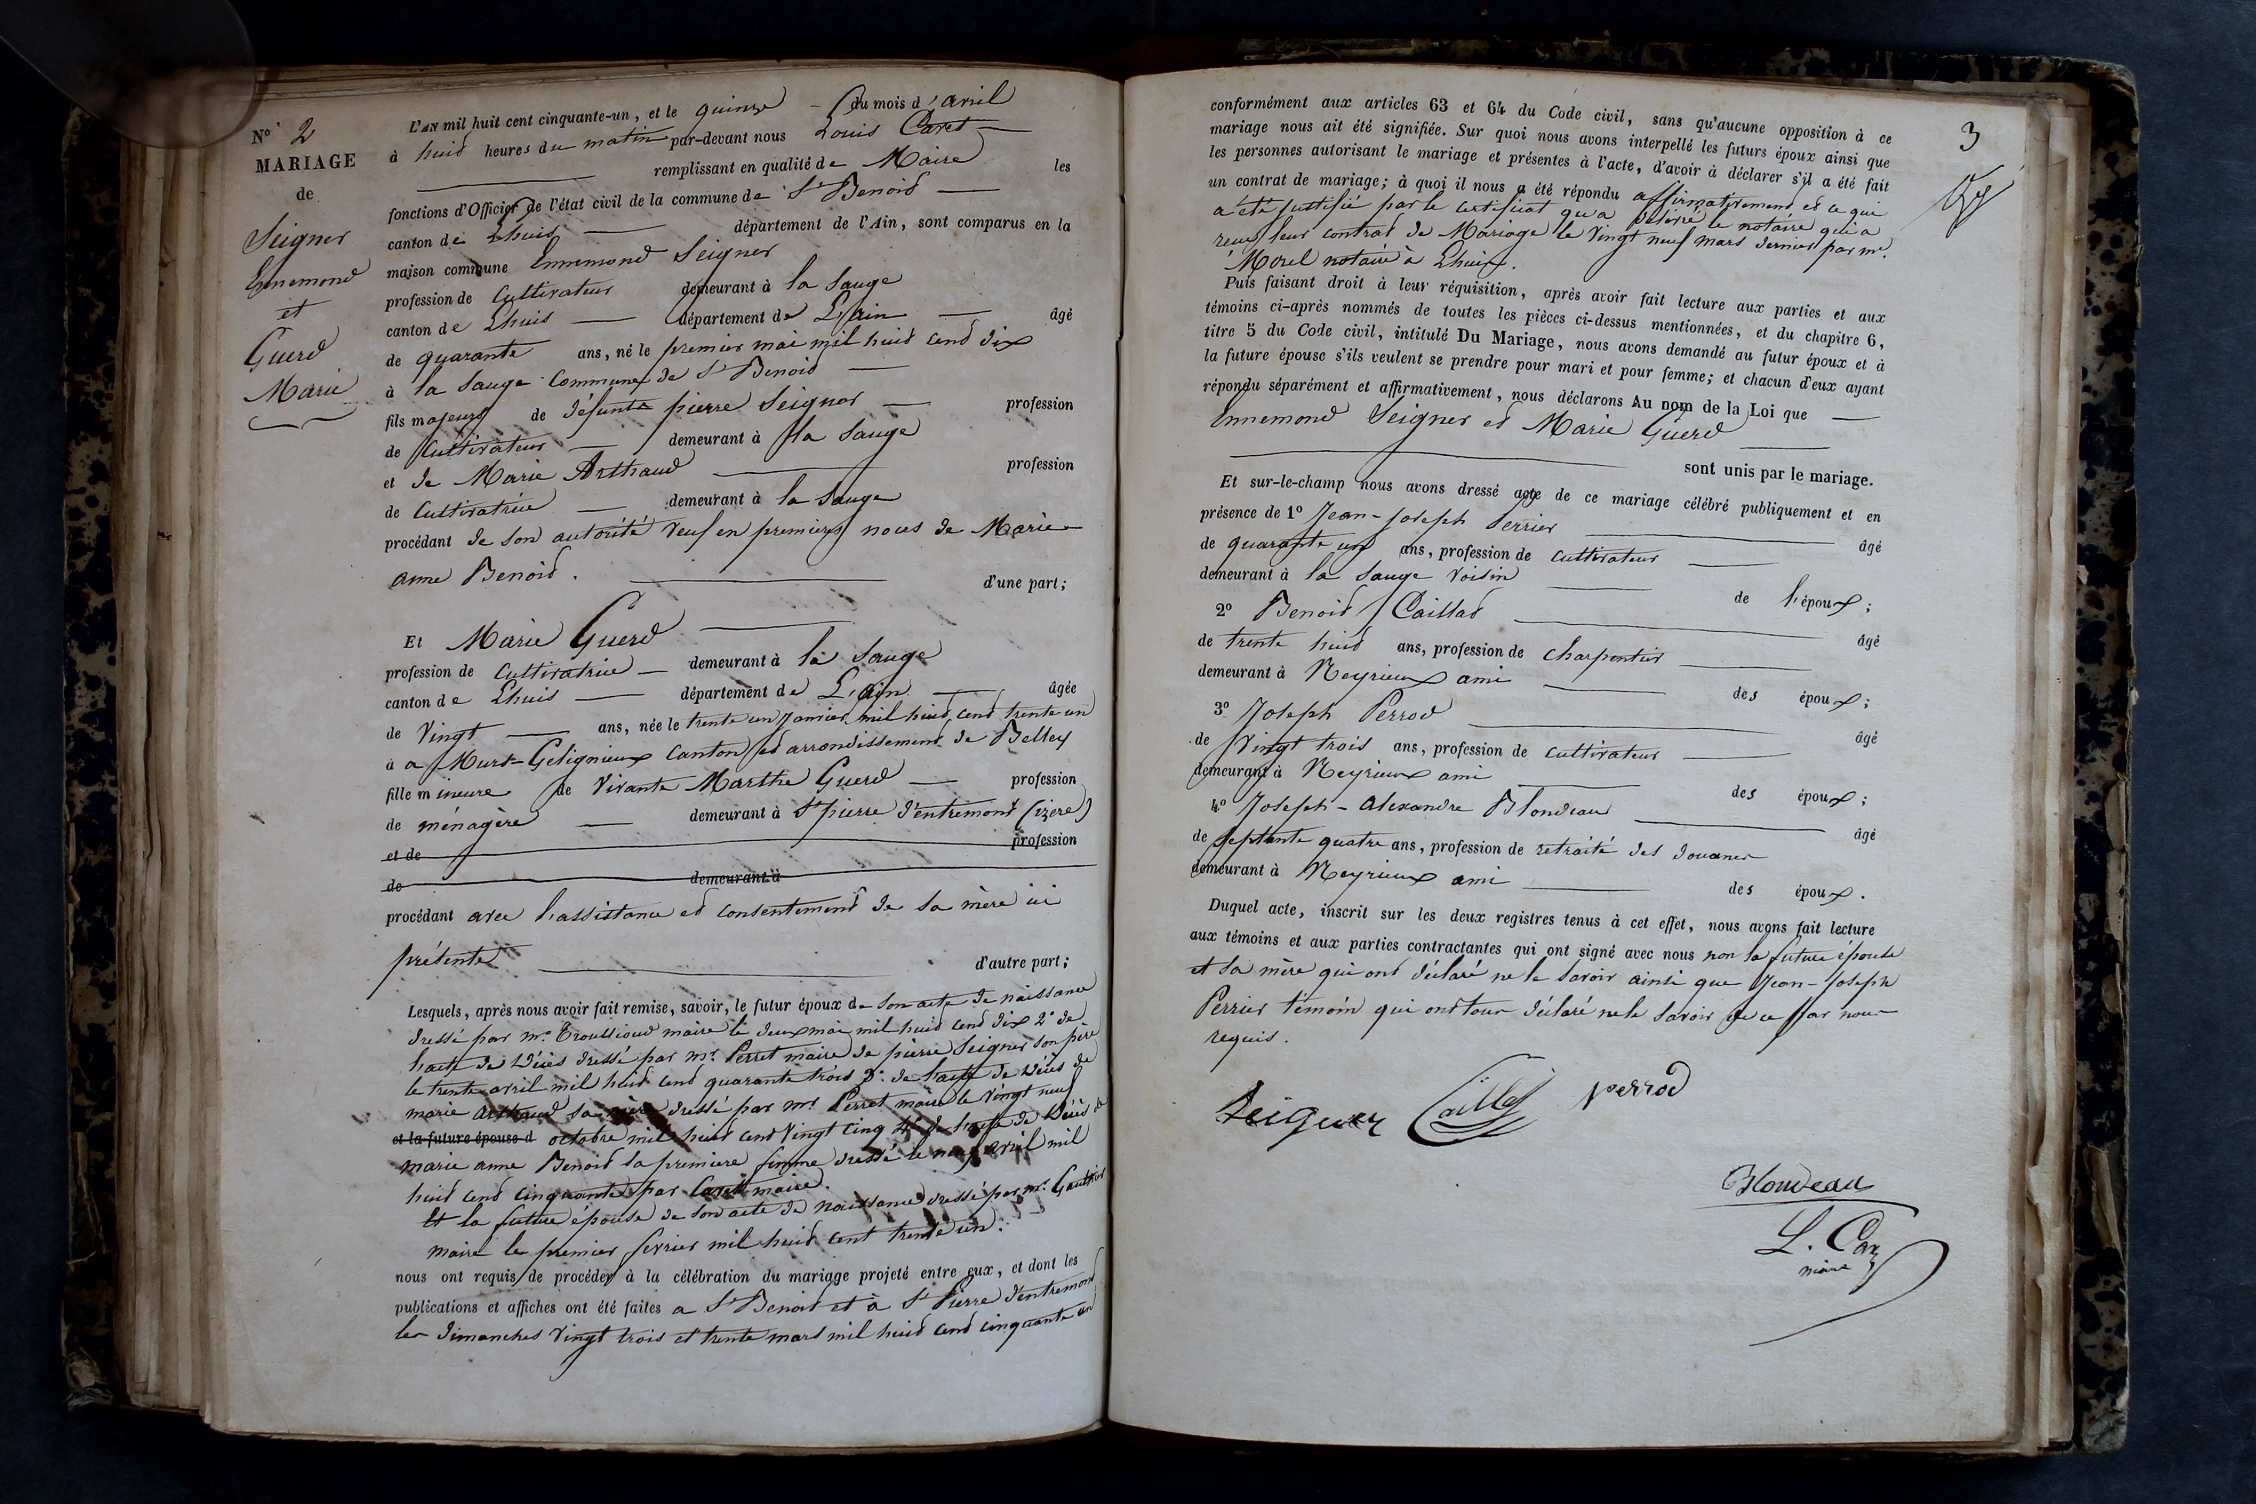 N° 2
MARIAGE
de
Seigner
Ennemond
et
Guerd
Marie
L'AN mil huit cent cinquante-un, et le quinze du mois d'avril
à huid heures du matin par-devant nous Louis Caret
remplissant en qualité de Maire les
fonctions d'Officier de l'état civil de la commune de St Benoid
canton de Lhuis département de l'Ain, sont comparus en la
maison commune Ennemond Seigner
profession de cultivateur demeurant à la Sauge
canton de Lhuis département de L'ain âgé
de quarante ans, né le premier mai mil huid cend dix
à la Sauge Commune de St Benoid
fils majeur de défunts pierre Seigner profession
de cultivateur demeurant à la Sauge
et de Marie Arthaud profession
de cultivatrice demeurant à la Sauge
procédant de son autorité veuf en premières noces de Marie
anne Benoid. d'une part;
Et Marie Guerd
profession de cultivatrice demeurant à la Sauge
canton de Lhuis département de L'ain âgée
de vingt ans, née le trente un janvier mil huid cend trente un
à a Murs-Gelignieux canton ed arrondissemend de Belley
fille mineure de vivante Marthe Guerd profession
de ménagère demeurant à St pierre d'entremont (izère)
et de profession
de demeurant à
procédant avec l'assistance ed consentemend de sa mère ici
présente d'autre part;
Lesquels, après nous avoir fait remise, savoir, le futur époux de son acte de naissance
dressé par mr. Troussioud maire le deux mai mil huid cend dix 2° de
l'acte de décès dressé par mr Perret maire de pierre Seigner son père
le trente avril mil huid cend quarante trois 3° de l'acte de décès de
marie Arthaud sa mère dressé par mr Perret maire le vingt neuf
et la future épouse d octobre mil huid cend vingt cinq 4° de l'acte de décès de
marie anne Benoid sa premiere femme dressé le neuf avril mil
huid cend cinquante par Caret maire.
Et la future épouse de son acte de naissance dressé par mr. Gauthier
maire le premier fevrier mil huid cent trente un.
nous ont requis de procéder à la célébration du mariage projeté entre eux, et dont les
publications et affiches ont été faites a St Benoid et à St Pierre d'entremond
les dimanches vingt trois et trente mars mil huid cend cinquante un
3
conformément aux articles 63 et 64 du Code civil, sans qu'aucune opposition à ce
mariage nous ait été signifiée. Sur quoi nous avons interpellé les futurs époux ainsi que
les personnes autorisant le mariage et présentes à l'acte, d'avoir à déclarer s'il a été fait
un contrat de mariage; à quoi il nous a été répondu affirmativemend ed ce qui
a été justifié par le certificat qu'a délivré le notaire qui a
reçu leur contrad de Mariage le vingt neuf mars dernier par mr.
Morel notaire à Lhuis.
Puis faisant droit à leur réquisition, après avoir fait lecture aux parties et aux
témoins ci-après nommés de toutes les pièces ci-dessus mentionnées, et du chapitre 6,
titre 5 du Code civil, intitulé Du Mariage, nous avons demandé au futur époux et à
la future épouse s'ils veulent se prendre pour mari et pour femme; et chacun d'eux ayant
répondu séparément et affirmativement, nous déclarons Au nom de la Loi que
Ennemond Seigner ed Marie Guerd
sont unis par le mariage.
Et sur-le-champ nous avons dressé acte de ce mariage célébré publiquement et en
présence de 1° Jean-joseph Perrier âgé
de quarante un ans, profession de cultivateur
demeurant à la Sauge voisin de l'époux;
2° Benoid Caillad âgé
de trente huid ans, profession de charpentier
demeurant à Neyrieux ami des époux;
3° Joseph Perrod âgé
de vingt trois ans, profession de cultivateur
demeurant à Neyrieux ami des époux;
4° Joseph-alexandre Blondeau âgé
de septante quatre ans, profession de retraité des douanes
demeurant à Neyrieux ami des époux.
Duquel acte, inscrit sur les deux registres tenus à cet effet, nous avons fait lecture
aux témoins et aux parties contractantes qui ont signé avec nous non la future épouse
et sa mère qui ond déclaré ne le savoir ainsi que Jean-Joseph
Perrier témoin qui ond tous déclaré ne le savoir de ce par nous
requis.
Seigner Caillat perrod
Blondeau
L. Caret
maire